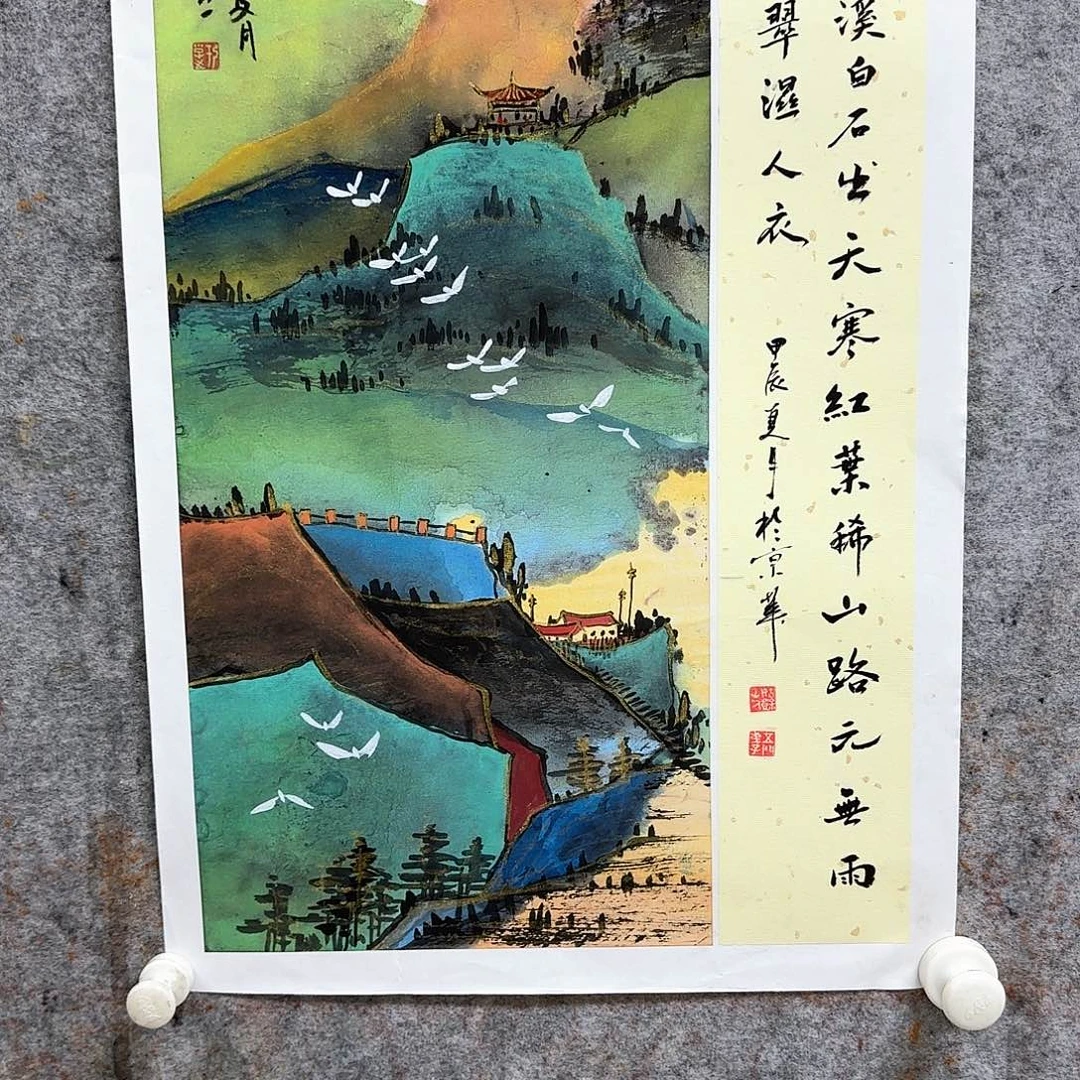 溪白石出天寒紅葉稀山路元無雨
翠濕人衣
甲辰夏月於京華
夏月